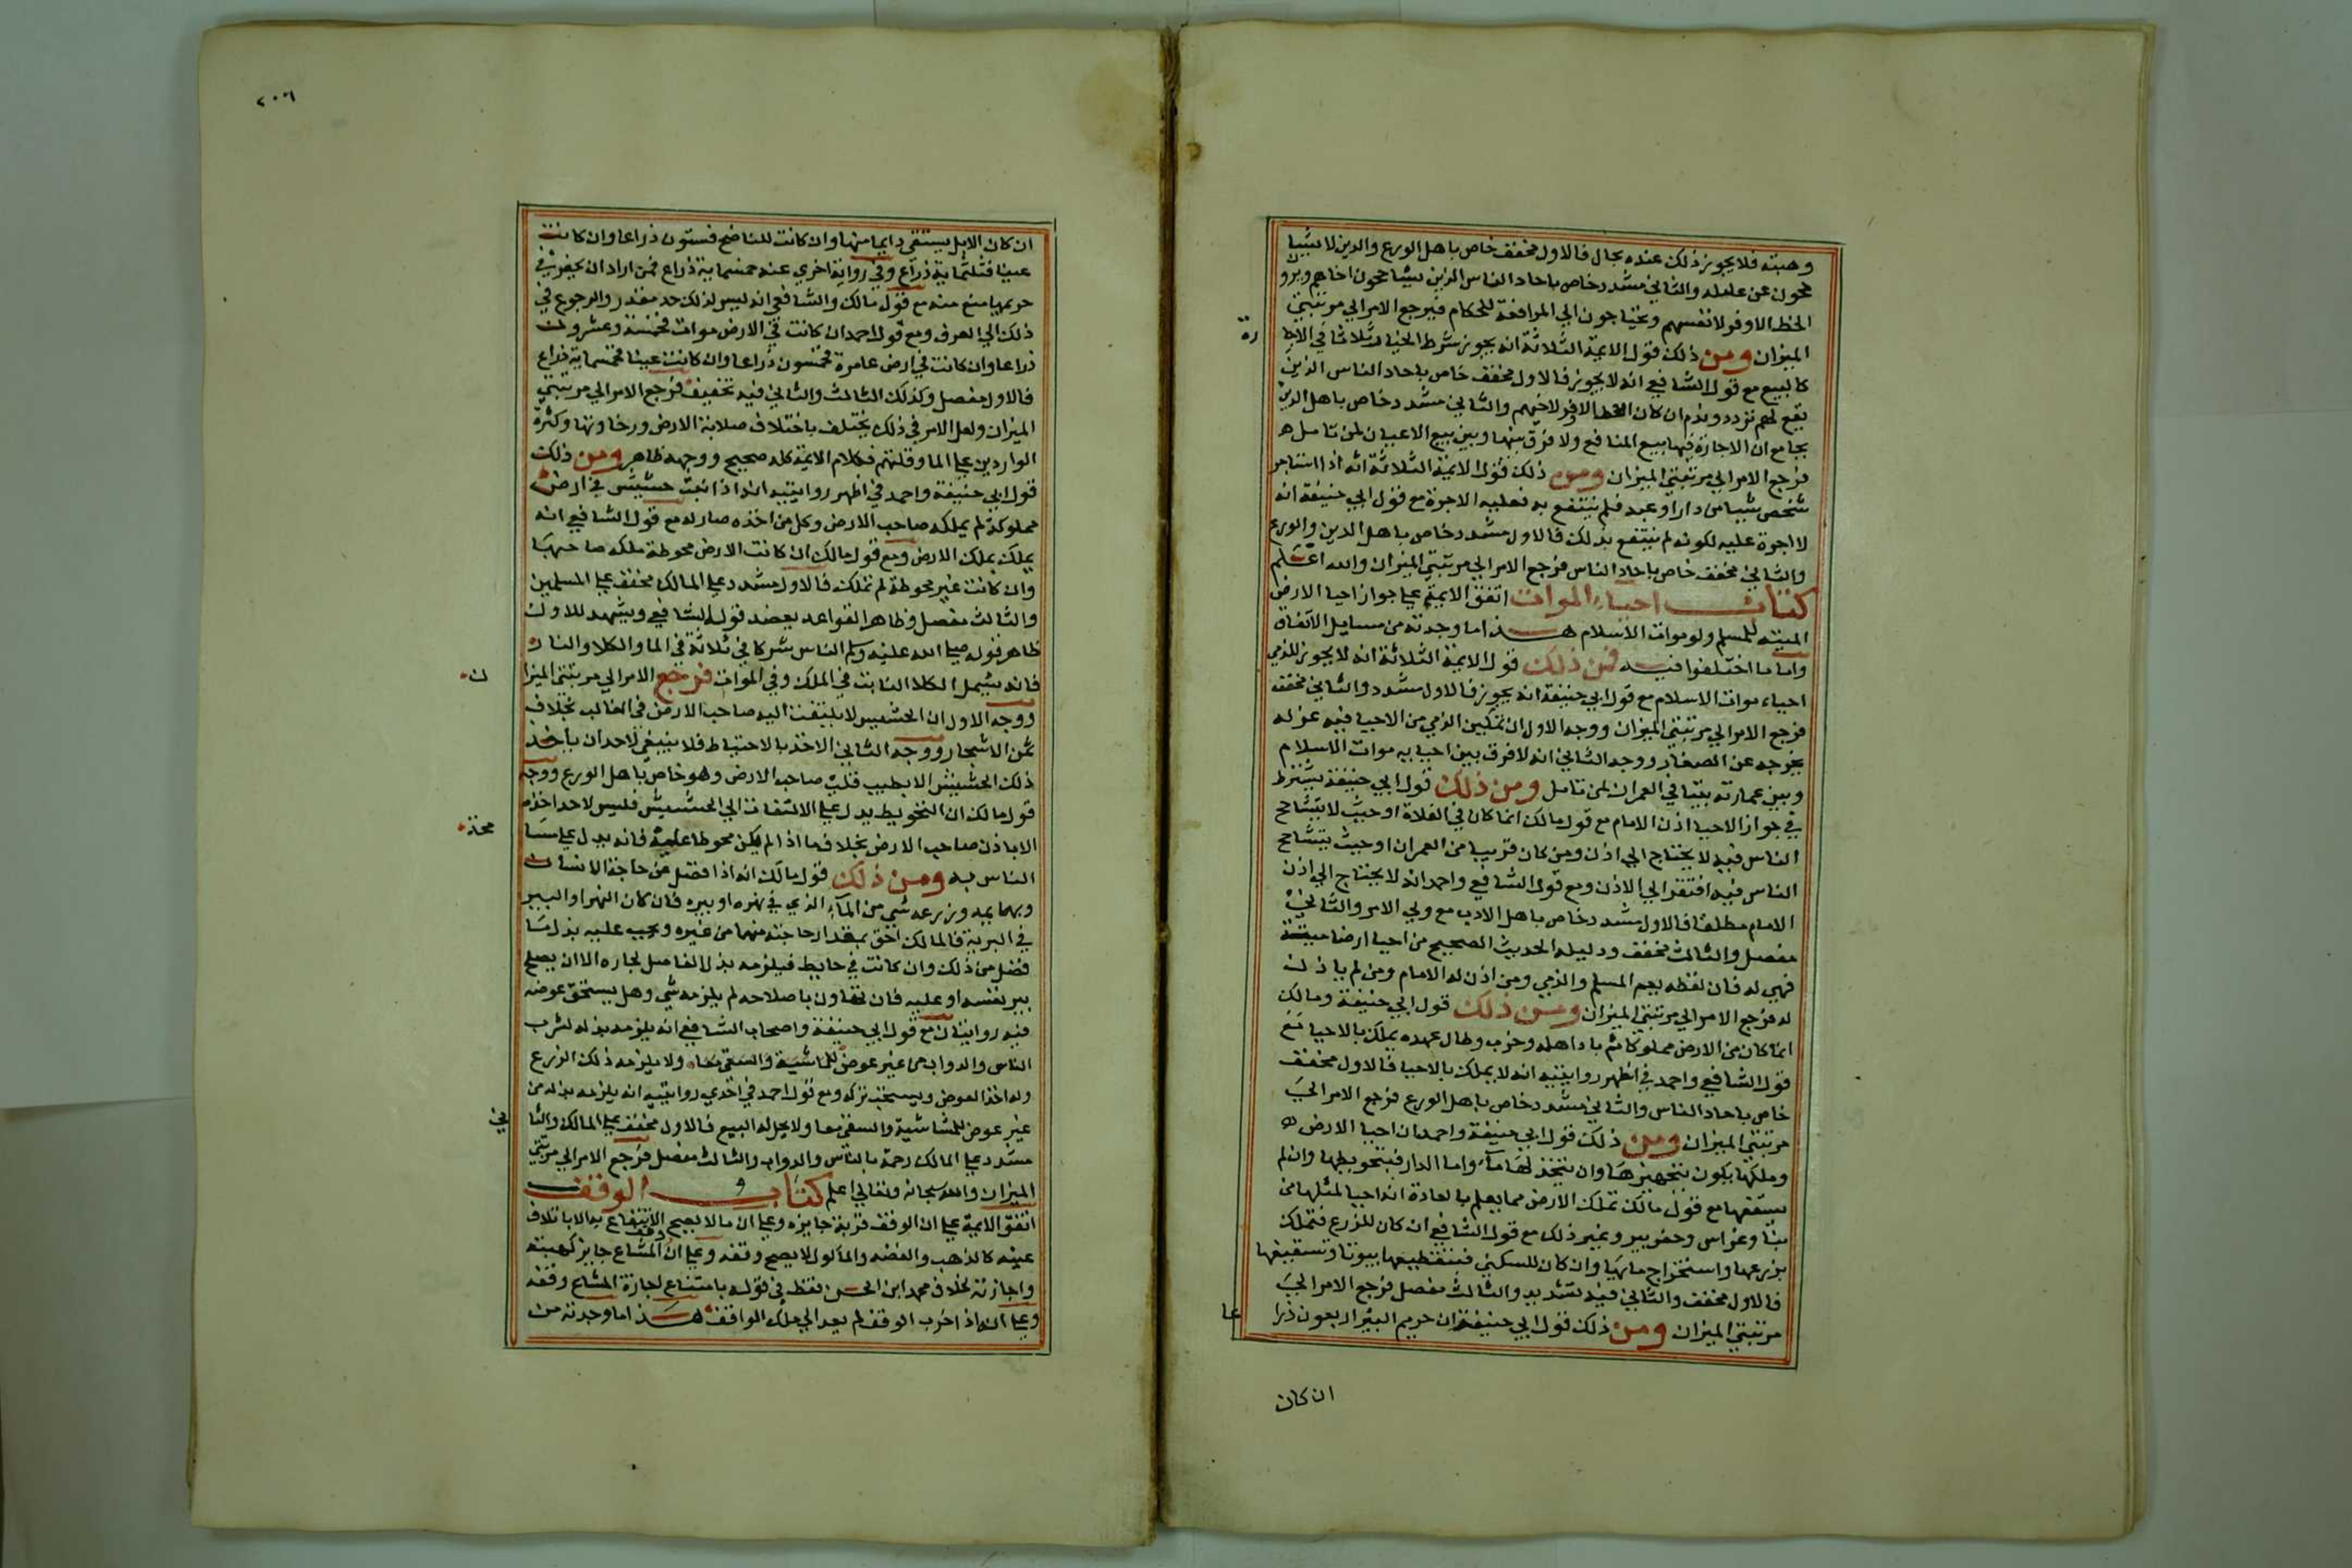 وهبته فلا يجوز ذلك عنده بحال فالاول مخفف خاص باهل الورع والدين لا يشيا
محون عن عامله والثاني مشدد خاص باحاد الناس الذين يشاححون اخاهم ويرو
الحظ الاوفر لانفسهم ويحتاجون الي المرافعة للحكام فيرجع الامر الي مرتبتي
الميزان ومن ذلك قول الايمة الثلاثة انه يجوز شرط الخيار ثلاثا في الاجا
رة
كالبيع مع قول الشافعي انه لا يجوز فالاول مخفف خاص باحاد الناس الذين
يقع لهم تردد وندم ان كان الحظ الاوفر لاخيهم والثاني مشدد خاص باهل الدين
بجامع ان الاجارة فيها بيع المنافع ولا فرق بينها وبين بيع الاعيان لمن تامل ه
فرجع الامر الي مرتبتي الميزان ومن ذلك قول الايمة الثلاثة انه اذا استاجر
شخص شيا من دار او عبد فلم ينتفع به فعليه الاجرة مع قول ابي حنيفة انه
لا اجرة عليه لكونه لم ينتفع بذلك فالاول مشدد خاص باهل الدين والورع
والثاني مخفف خاص باحاد الناس فرجع الامر الي مرتبتي الميزان والله اعلم
كتاب احياء الموات اتفق الايمة علي جواز احيا الارض
الميتة للمسلم ولو موات الاسلام هذا ما وجدته من مسايل الاتفاق
واما ما اختلفوا فيه فمن ذلك قول الايمة الثلاثة انه لا يجوز للذمي
احياء موات الاسلام مع قول ابي حنيفة انه يجوز فالاول مشدد والثاني مخفف
فرجع الامر الي مرتبتي الميزان ووجه الاول ان تمكين الذمي من الاحيا فيه عز له
يخرجه عن الصغار ووجه الثاني انه لا فرق بين احيايه موات الاسلام
وبين عمارته بيتا في العمران لمن تامل ومن ذلك قول ابي حنيفة يشترط
في جواز الاحيا اذن الامام مع قول مالك انما كان في الفلاة او حيث لا يتشاحح
الناس فيه لا يحتاج الي اذن ومن كان قريب من العمران او حيث يتشاحح
الناس فيه افتقر الي الاذن ومع قول الشافعي واحمد انه لا يحتاج الي اذن
الامام مطلقا فالاول مشدد خاص باهل الادب مع ولي الامر والثاني
مفصل والثالث مخفف ودليله الحديث الصحيح من احيا ارضا ميتة
فهي له فان لفظه يعم المسلم والذمي ومن اذن له الامام ومن لم ياذن
له فرجع الامر الي مرتبتي الميزان ومن ذلك قول ابي حنيفة ومالك
انما كان من الارض مملوكا ثم باد اهله وخرب وطال عهده يملك بالاحيا مع
قول الشافعي واحمد في اظهر روايتيه انه لا يملك بالاحيا فالاول مخفف
خاص باحاد الناس والثاني مشدد خاص باهل الورع فرجع الامر الي
مرتبتي الميزان ومن ذلك قول ابي حنيفة واحمد ان احيا الارض ه
وملكها يكون بتحجيرها وان يتخذ لها مآء واما الدار فبتحويطها وان لم
يسقفها مع قول مالك تملك الارض مما يعلم بالعادة انه احيا لمثلها من
بنا وغراس وحفر بير وغير ذلك مع قول الشافعي ان كان للزرع فتملك
بزرعها واستخراج مايها وان كان للسكني فبتقطيعها بيوتا وتسقيفها
فالاول مخفف والثاني فيه تشديد والثالث مفصل فرجع الامر الي
مرتبتي الميزان ومن ذلك قول ابي حنيفة ان حريم البير اربعون ذرا
عا
ان كان
٢٠٦
ان كان الابل يستقي دايما منها وان كانت للناضح فستون ذراعا وان كانت
عينا فثلثماية ذراع وفي رواية اخري عنده خمسماية ذراع فمن اراد ان يحفر في
حريمها منع منه مع قول مالك والشافعي انه ليس لذلك حد مقدر والرجوع في
ذلك الي العرف ومع قول احمد ان كانت في الارض موات فخمسة وعشرون
ذراعا وان كانت في ارض عامرة فخمسون ذراعا وان كانت عينا فخمسماية ذراع
فالاول مفصل وكذلك الثالث والثاني فيه تخفيف فرجع الامر الي مرتبتي
الميزان ولعل الامر في ذلك يختلف باختلاف صلابة الارض ورخاوتها وكثرة
الواردين علي الما وقلتهم فكلام الايمة كله صحيح ووجهه ظاهر ومن ذلك
قول ابي حنيفة واحمد في اظهر روايتيه انه اذا نبت حشيش في ارض
مملوكة لم يملكه صاحب الارض وكل من اخذه صار له مع قول الشافعي انه
يملك بملك الارض ومع قول مالك ان كانت الارض محوطة ملكه صاحبها
وان كانت غير محوطة لم تملك فالاول مشدد علي المالك مخفف علي المسلمين
والثالث مفصل وظاهر القواعد يعضد قول الشافعي ويشهد للاول
ظاهر قوله صلي الله عليه وسلم الناس شركا في ثلاثة في الما والكلا والنار
فانه يشمل الكلا النابت في الملك وفي الموات فرجع الامر الي مرتبتي الميزا
ن
ووجه الاول ان الحشيش لا يلتفت اليه صاحب الارض في الغالب بخلاف
ثمن الاشجار ووجه الثاني الاخذ بالاحتياط فلا ينبغي لاحد ان ياخذ
ذلك الحشيش الا بطيب قلب صاحب الارض وهو خاص باهل الورع ووجه
قول مالك ان التحويط يدل علي الالتفات الي الحشيش فليس لاحد اخذه
الا باذن صاحب الارض بخلاف ما اذا لم يكن محوطا عليه فانه يدل علي مسا
محة
الناس به ومن ذلك قول مالك انه اذا فضل عن حاجة الانسان
وبهايمه وزرعه شي من المآء الذي في نهره او بيره فان كان النهر او البير
في البرية فالمالك احق بمقدار حاجته منهما من غيره ويجب عليه بذل ما
فضل من ذلك وان كانت في حايط فيلزمه بذل الفاضل لجاره الا ان يصلح
بير نفسه او عليه فان تهاون باصلاحه لم يلزمه شي وهل يستحق عوضه
فيه روايتان مع قول ابي حنيفة واصحاب الشافعي انه يلزمه بذله لشرب
الناس والدواب من غير عوض للماشية والسقي معا ولا يلزمه ذلك الزرع
وله اخذ العوض ويستحب تركه ومع قول احمد في احدي روايتيه انه يلزمه بذله من
غير عوض للماشية والسقي معا ولا يحل له البيع فالاول مخفف علي المالك والثا
ني
مشدد علي المالك رحمة بالناس والدواب والثالث مفصل فرجع الامر الي مرتبتي
الميزان والله سبحانه وتعالي اعلم كتاب الوقف
اتفق الايمة علي ان الوقف قربة جايزة وعلي ان ما لا يصح الانتفاع به الا باتلاف
عينه كالذهب والفضه والماكول لا يصح وقفه وعلي ان وقف المشاع جايز كهبته
واجازته خلاف محمد ابن الحسن فقط في قوله بامتناع اجازة المشاع وقفه
وعلي انه اذا خرب الوقف لم يعد الي ملك الواقف هذا ما وجدته من